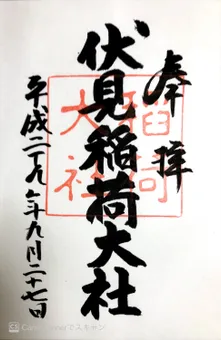 奉拝
伏見稲荷大社
稲荷
大社
平成二十九年九月二十七日